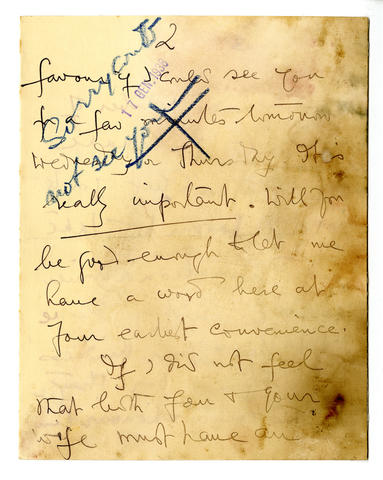 2
Sorry cant
not see you
17 DEN 1930
favour if I could see you
for a few minutes tomorrow
Wednesday or Thursday. It is
really important. Will you
be good enough to let me
have a word here at
your earliest convenience.
If I did not feel
that both you & your
wife must have an